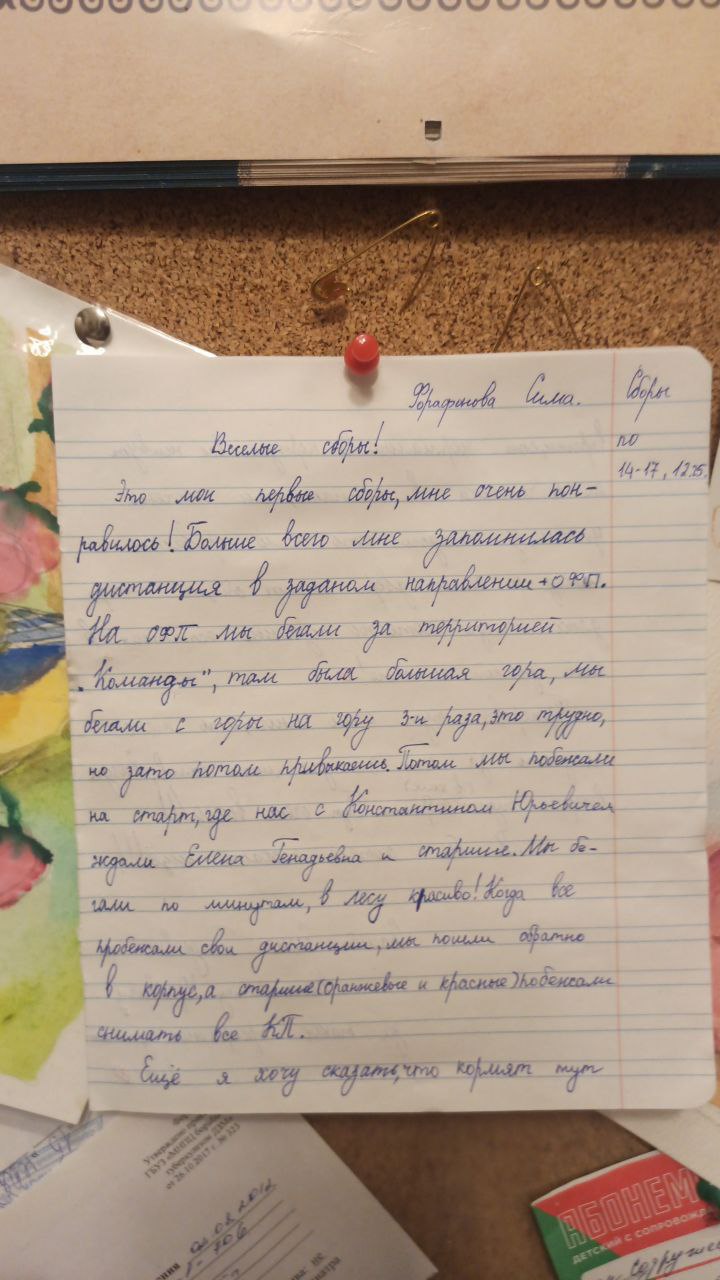 Форафонова Сима.
Сборы
по
14-17, 12.25.
Веселые сборы!
Это мои первые сборы, мне очень пон-
равилось! Больше всего мне запомнилась
дистанция в заданом направлении + ОФП.
На ОФП мы бегали за территорией
„Команды", там была большая гора, мы
бегали с горы на гору 3-и раза, это трудно,
но зато потом привыкаешь. Потом мы побежали
на старт, где нас с Константином Юрьевичем
ждали Елена Генадьевна и старшие. Мы бе-
гали по минутам, в лесу красиво! Когда все
пробежали свои дистанции, мы пошли обратно
в корпус, а старшие (оранжевые и красные) побежали
снимать все КП.
Ещё я хочу сказать, что кормят тут
Утверждено
ГБУЗ
от 26.10.2017 г. № 323
АБОНЕМ
ДЕТСКИЙ С СОПРОВОЖД